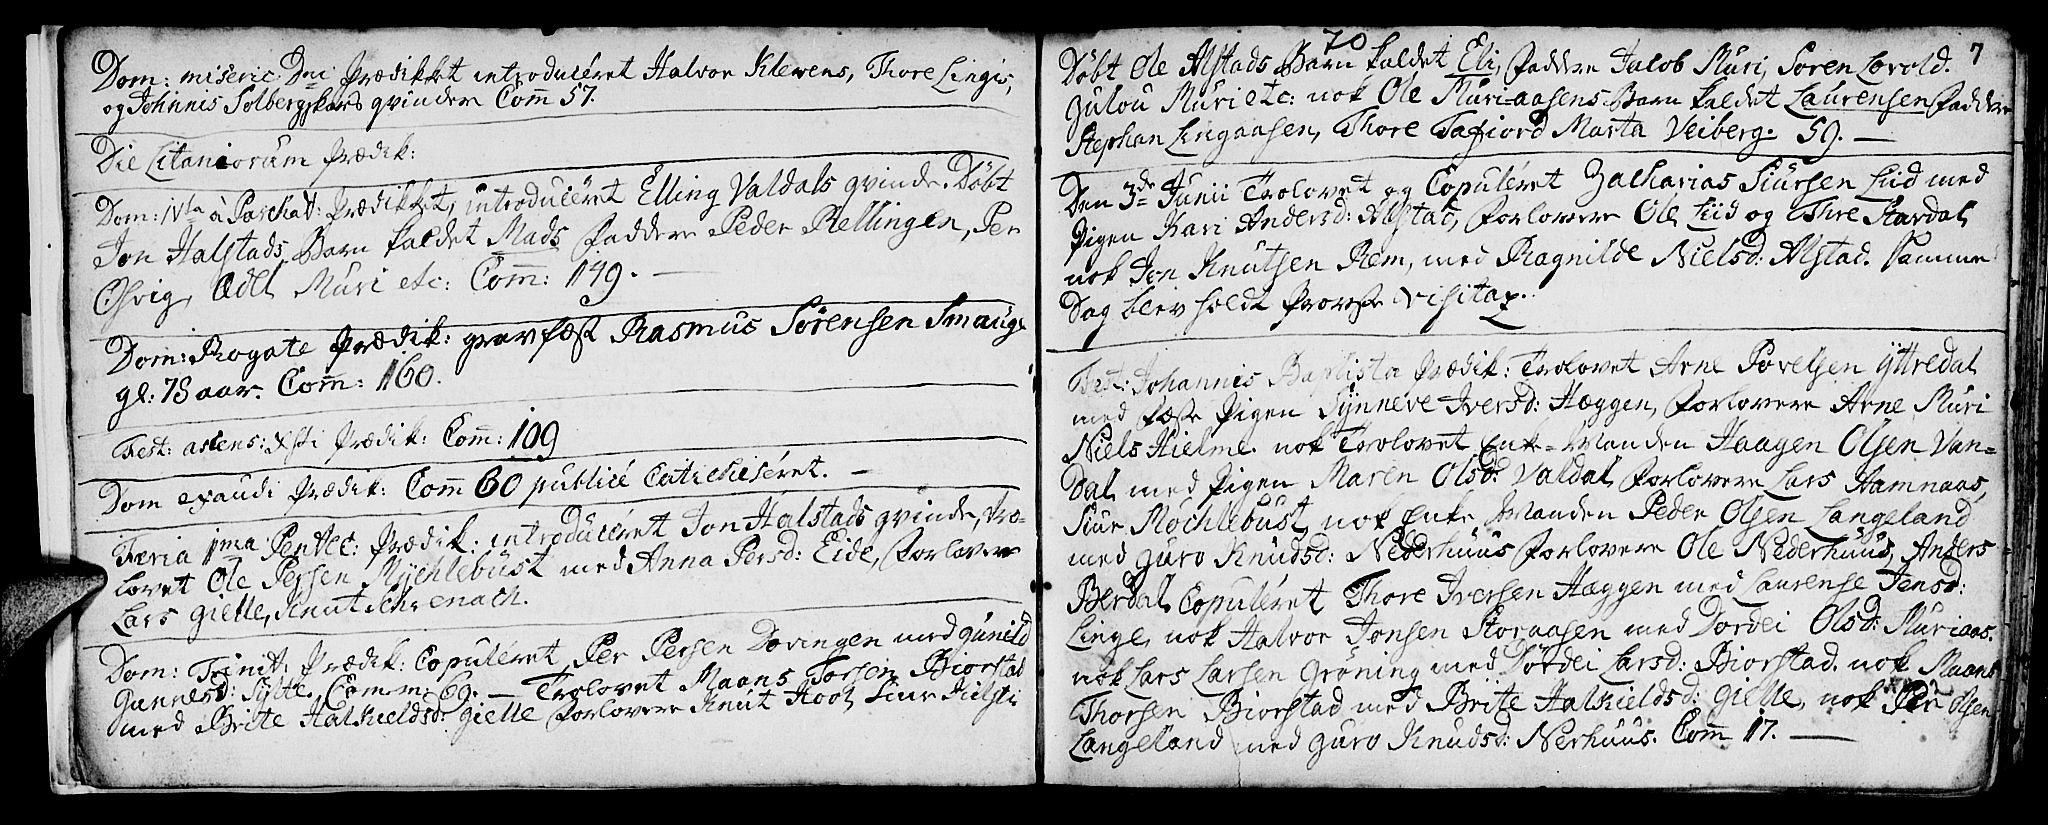 Dom: miseric Dni Prædikket introduceret Halvor Klevens, Thore Linges,
og Johannis Solbergskars qvinder Com̄ 57.
Die Litaniorum Prædik:
Dom: IVta a Paschat: Prædikket, introduceret Elling Valdals qvinde. Døbt
Jon Halstads Barn kaldet Mads Faddere Peder Rellingen, Per
Osvig, Odll Muri etc: Com̄: 149. —
Dom: Rogate Prædik: gravfæst Rasmus Sørensen Smauge
gl: 78 aar. Com̄: 160.
Fest: ascens: Xsti Prædik: Com̄: 109
Dom exaudi Prædik: Com̄ 60 publicé Catechiséret. —
Færia IIma Pentec: Prædik: introducéret Jon Halstads qvinde, Tro-
lovet Ole Persen Mychlebust med Anna Persd: Eide, Forlovere
Lars Gielle, Knut
Dom: Trinit: Prædik: Copuleret Per Persen Døvingen med Gunild
Gunnersd: Sylte. Com̄ 69. — Trolovet Maans Torsen Biorstad
med Brite Halkieldsd: Gielle Forlovere Knut Hool, Siur
70
7
Døbt Ole Alstads Barn kaldet Eli, Faddere Jacob Muri, Søren Lovold.
Gulou Muri etc: nok Ole Muri-aasens Barn kaldet Laurensen Faddere
Stephan Lingaasen, Thore Tafiord Marta Veiberg. 59. —
Den 3de Junii Trolovet og Copuléret Zacharias Siursen Liid med
Pigen Kari Andersd: Alstad, Forlovere Ole Liid og Thre Stavdal
nok Jon Knutsen Rem, med Ragnilde Nielsd: Alstad. Samme
Dag blev holdt Provste Visitaz.
Fest: Johannis Baptista Prædik: Trolovet Arne Povelsen Yttredal
med Fæste Pigen Synneve Iversd: Hæggen, Forlovere Arne Muri
Niels Hielme. nok Trolovet Enke-Manden Haagen Olsen Van-
Dal med Pigen Maren Olsd: Valdal Forlovere Lars Hamnaas,
Siur Mochlebust, nok Enke Manden Peder Olsen Langeland
med Guro Knudsd: Nederhuus Forlovere Ole Nederhuus, Anders
Berdal, Copuléret Thore Iversen Hæggen med Laurense Jensd:
Linge, nok Halvor Jonsen Storaasen med Dordei Olsd: Muriaas.
nok Lars Larsen Grøning med Dordei Larsd: Biorstad. nok Maans
Thorsen Biorstad med Brite Halkieldsd: Gielle, nok Per Olsen
Langeland med Guro Knudsd: Nerhuus. Com̄ 117. —